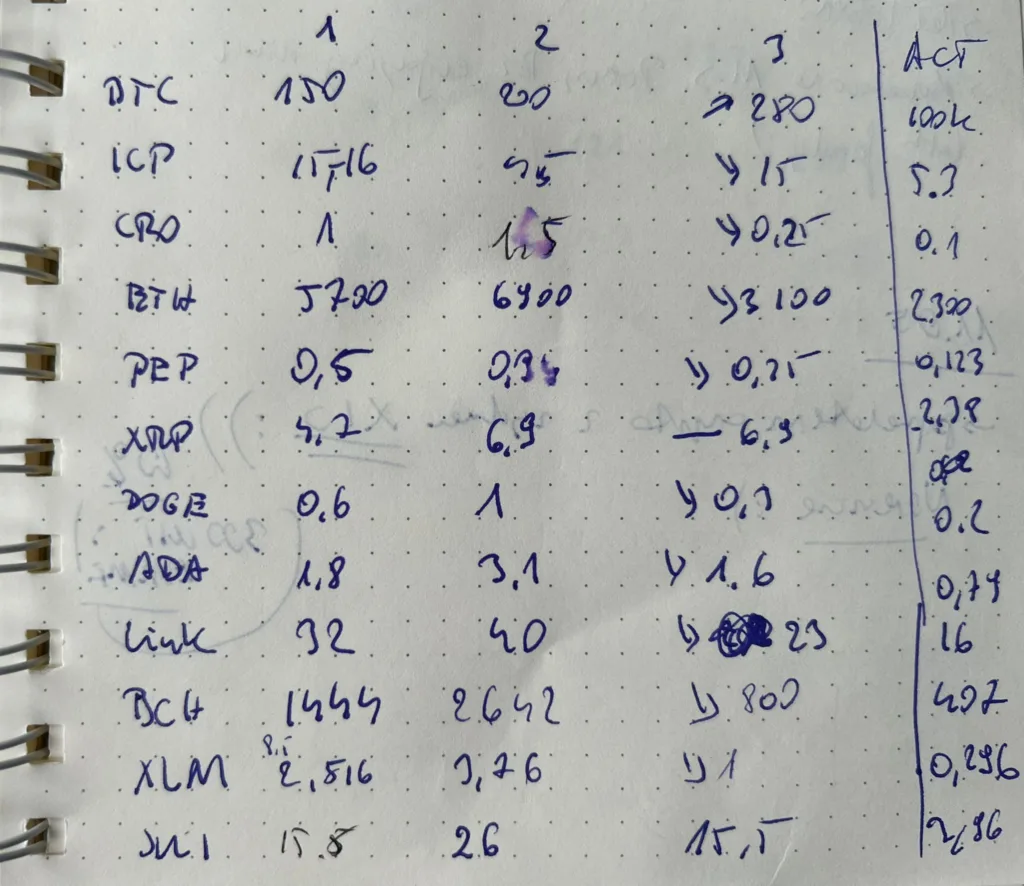 1 2 3 ACT
BTC 150 200 ↗ 280 100k
ICP 15,16 ↘ 15 5.3
CRO 1 1,5 ↘ 0,25 0.1
ETH 5700 6900 ↘ 3100 2300
PEP 0,5 ↘ 0,25 0,123
XRP 4,7 6,9 — 6,9 2,38
DOGE 0,6 1 ↘ 0,3 0.2
ADA 1,8 3,1 ↘ 1.6 0,79
Link 32 40 ↘ 23 16
BCH 1444 2642 ↘ 800 407
XLM 2,516 3,76 ↘ 1 0,296
SUI 15.8 26 15,5 2,96